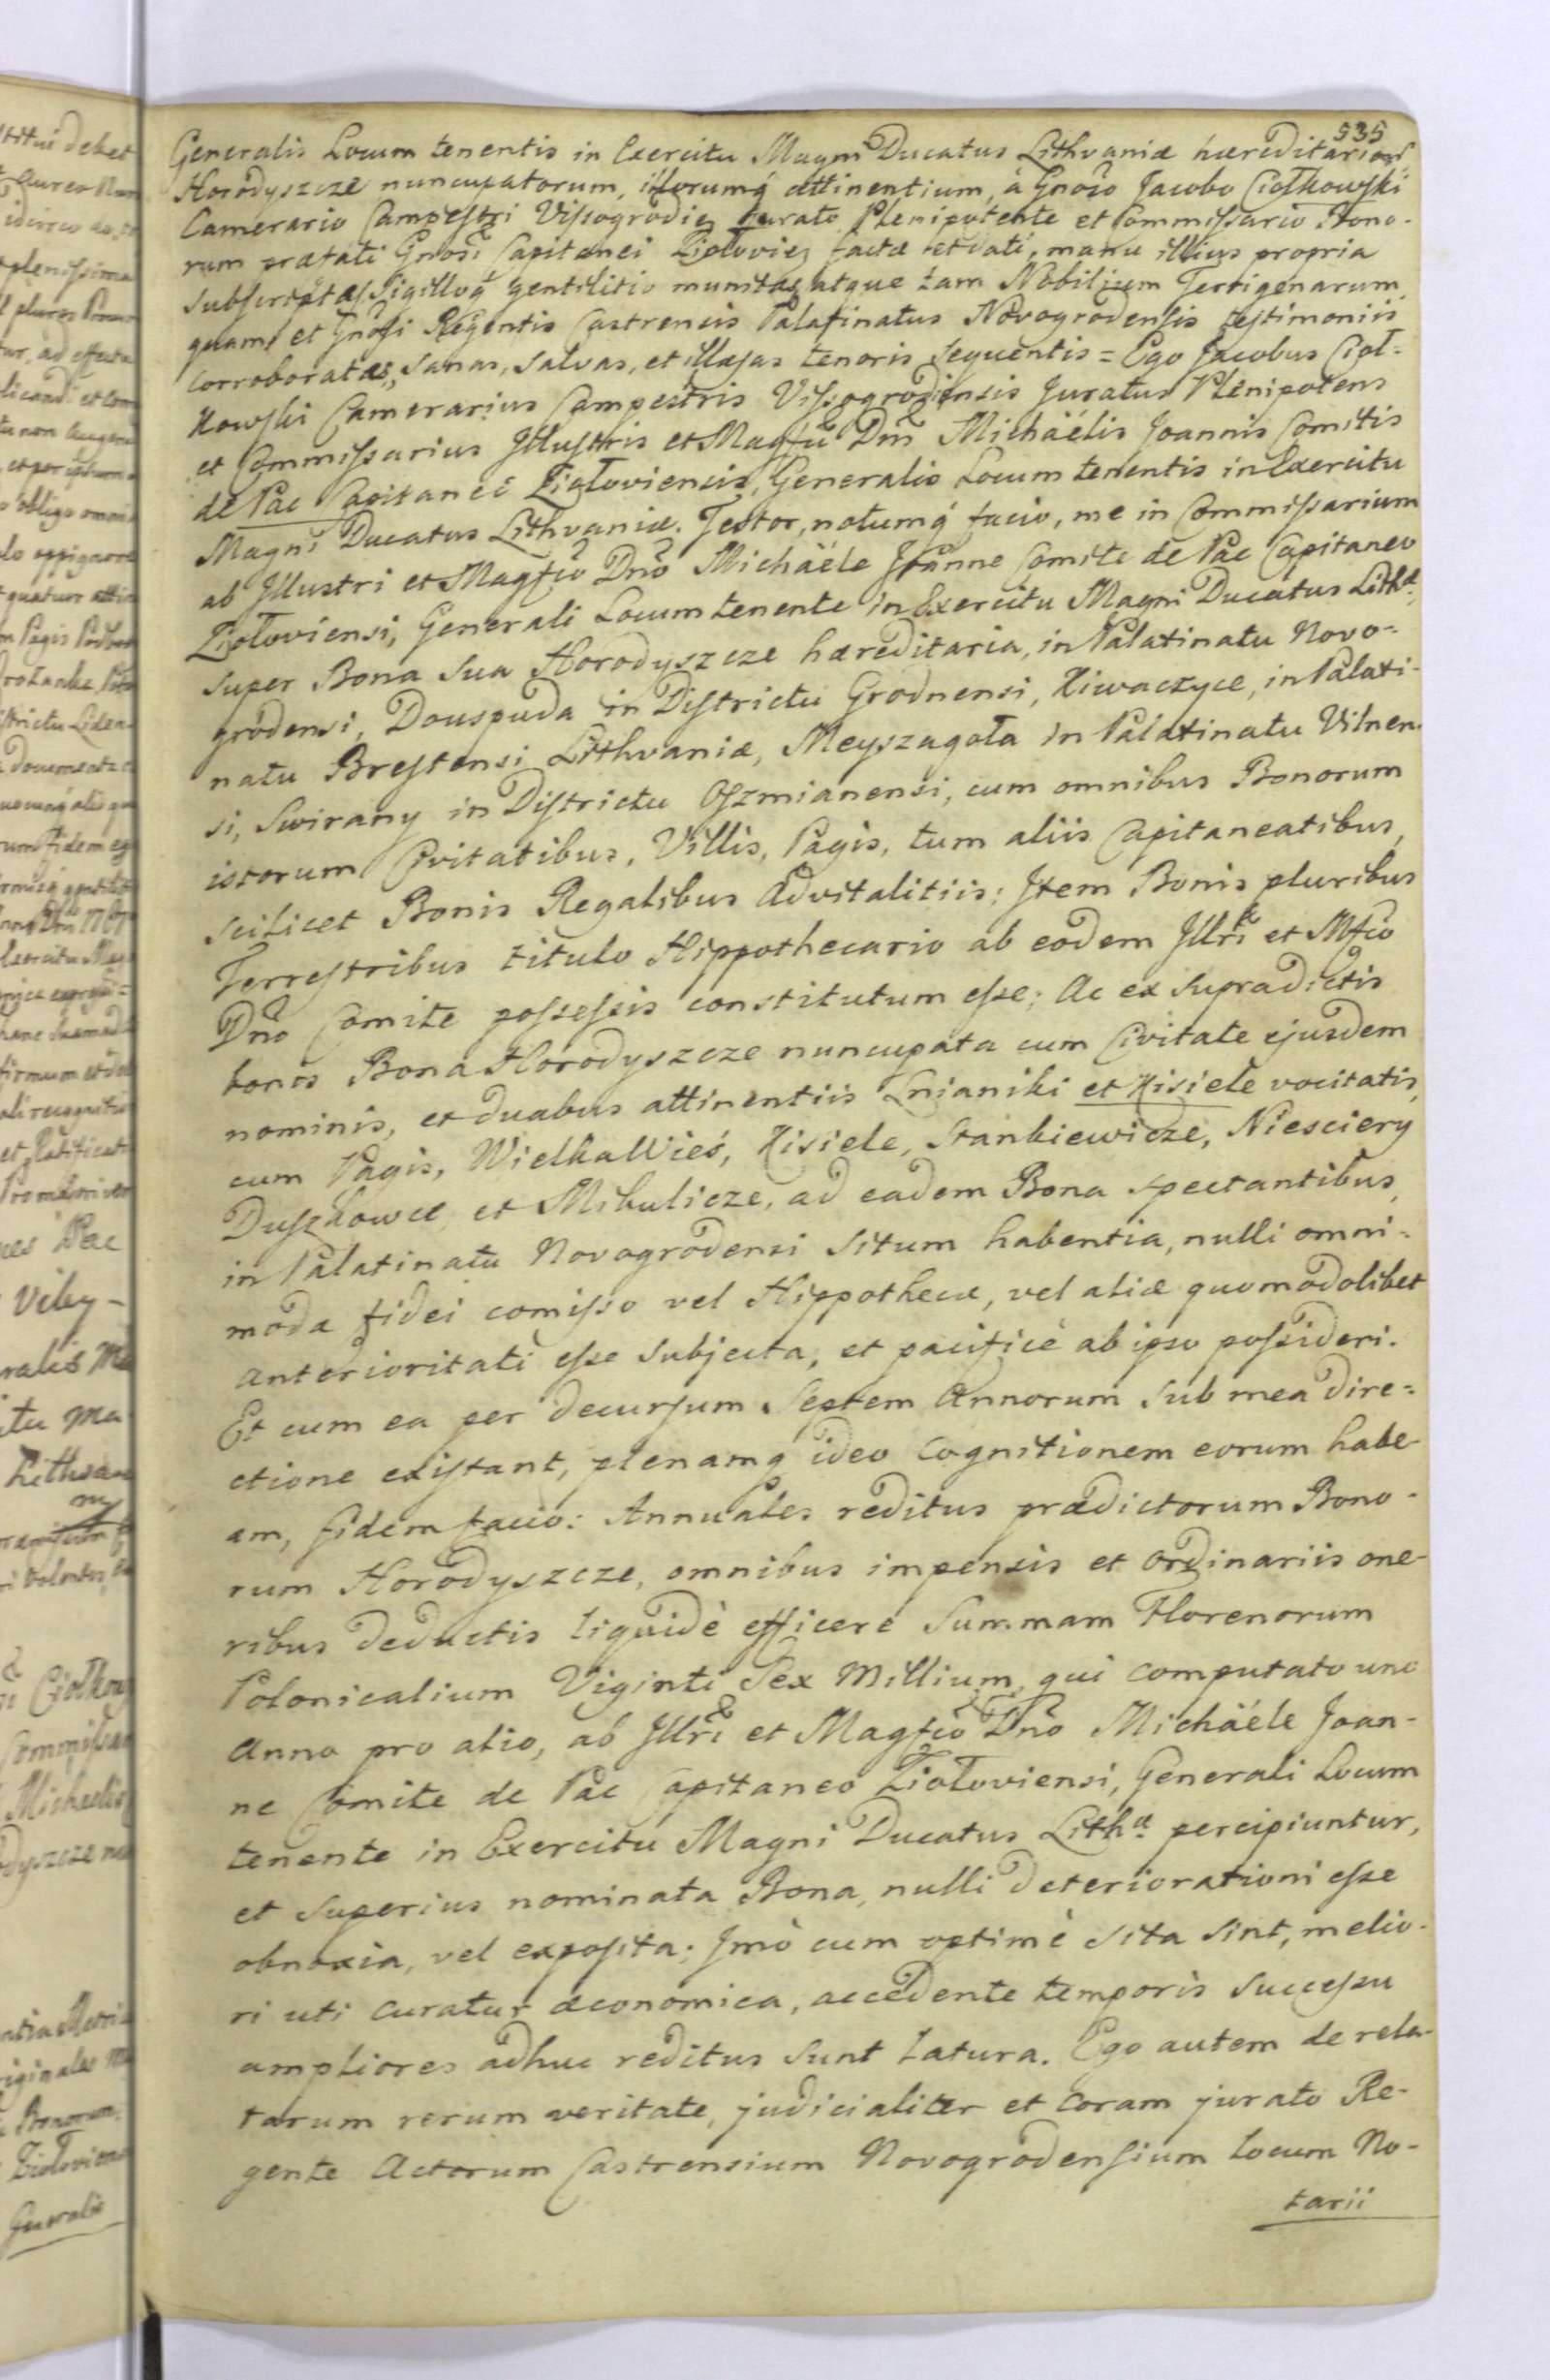 535
Generalis Locum tenentis in Exercitu Magni Ducatus Lithvaniæ hæreditariorū
Horodyszcze nuncupatorum, illorumq́ attinentium, à Gnōso Jacobo Ciołkowski
Camerario Campestri Vissogrodien Jurato Plenipotente et Commissario Bono-
rum præfati Gnosi Capitanei Ziołovien factæ et dati, manu illius propria
subscriptas, Sigilloq́ gentilitio munitas, atque tam Nobilium Terrigenarum
quam et Gnōsi Regentis Castrensis Palatinatus Novogrodensis testimoniis
corroboratas, sanas, salvas, et illæsas tenoris sequentis = Ego Jacobus Cioł=
kowski Camerarius Campestris Vissogrodiensis Juratus Plenipotens
et Commissarius Jllustris et Magfci Dni Michäelis Joannis Comitis
de Pac Capitanei Ziołoviensis, Generalis Locum tenentis in Exercitu
Magni Ducatus Lithvaniæ. Testor, notumq́ facio, me in Commissarium
ab Jllustri et Magfco Dño Michäele Joanne Comite de Pac Capitaneo
Ziołoviensi, Generali Locumtenente in Exercitu Magni Ducatus Lithæ,
super Bona sua Horodyszcze hæreditaria, in Palatinatu Novo-
grodensi, Douspuda in Districtu Grodnensi, Kiwaczyce, in Palati-
natu Brestensi Lithvaniæ, Meyszagoła in Palatinatu Vilnen-
si, Swirany in Districtu Oszmianensi, cum omnibus Bonorum
istorum Civitatibus, Villis, Pagis, tum aliis Capitaneatibus,
scilicet Bonis Regalibus Advitalitiis; Jtem Bonis pluribus
Terrestribus titulo Hippothecario ab eodem Jllri et Mfco
Dño Comite possessis constitutum esse; Ac ex supradictis
bonis Bona Horodyszcze nuncupata cum Civitate ejusdem
nominis, et duabus attinentiis Lnianiki et Kisiele vocitatis,
cum Pagis, Wielka Wieś, Kisiele, Stankiewicze, Niesciery
Duszkowce, et Mikulicze, ad eadem Bona spectantibus,
in Palatinatu Novogrodensi situm habentia, nulli omni=
modæ fidei comisso vel Hippothecæ, vel aliæ quomodolibet
anterioritati esse subjecta, et pacificè ab ipso possideri.
Et cum ea per decursum Septem Annorum sub mea dire=
ctione existant, plenamq́ ideo cognitionem eorum habe-
am, fidem facio: Annuales reditus prædictorum Bono-
rum Horodyszcze, omnibus impensis et ordinariis one-
ribus deductis liquidè efficere Summam Florenorum
Polonicalium Viginti Sex Millium, qui computato uno
Anno pro alio, ab Jllri et Magfco Dño Michäele Joan-
ne Comite de Pac Capitaneo Ziołoviensi, Generali Locum
tenente in Exercitu Magni Ducatus Lithæ percipiuntur,
et superius nominata Bona, nulli deteriorationi esse
obnoxia, vel exposita; Jmò cum optimè sita sint, melio-
ri uti curatur œconomica, accedente temporis successu
ampliores adhuc reditus sunt latura. Ego autem de rela-
tarum rerum veritate, judicialiter et coram jurato Re-
gente Actorum Castrensium Novogrodensium Locum No-
tarii